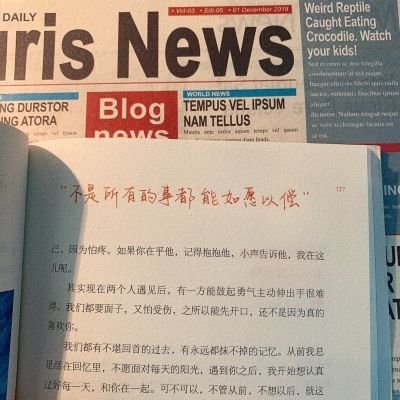 DAILY
• Vol-03 • Edi-05 • 01 December 2018
uris News
Weird Reptile
Caught Eating
Crocodile. Watch
your kids!
NG DURSTOR
ING ATORA
Blog
news
WORLD NEWS
TEMPUS VEL IPSUM
NAM TELLUS
127
“不是所有的事都能如愿以偿”
己，因为怕疼。如果你在乎他，记得抱抱他，小声告诉他，我在这
儿呢。
其实现在两个人遇见后，有一方能鼓起勇气主动伸出手很难
得。我们都要面子，又怕受伤，之所以能先开口，还不是因为真的
喜欢你。
我们都有不堪回首的过去，有永远都抹不掉的记忆。从前我总
是活在回忆里，不愿面对每天的阳光，遇到你之后，我开始想认真
过好每一天，和你在一起。可不可以，不管从前，不想以后，就这